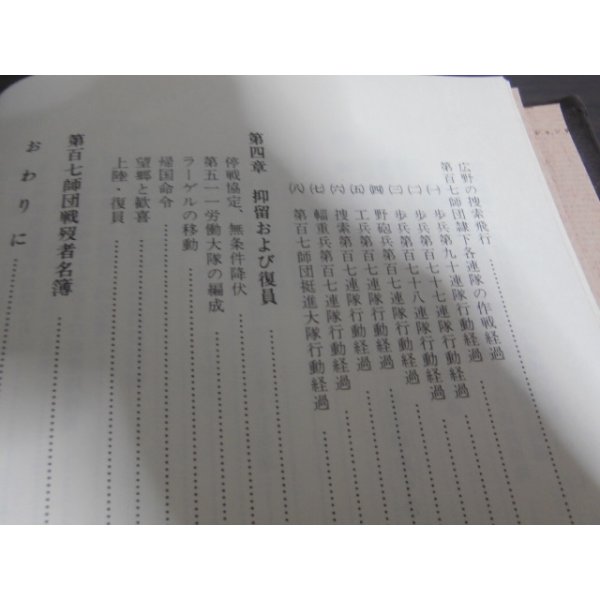 広野の捜索飛行
第百七師団隷下各連隊の作戦経過
㈠ 歩兵第九十連隊行動経過
㈡ 歩兵第百七十七連隊行動経過
㈢ 歩兵第百七十八連隊行動経過
㈣ 野砲兵第百七連隊行動経過
㈤ 工兵第百七連隊行動経過
㈥ 捜索第百七連隊行動経過
㈦ 輜重兵第百七連隊行動経過
㈧ 第百七師団挺進大隊行動経過
第四章 抑留および復員
停戦協定、無条件降伏
第五一一労働大隊の編成
ラーゲルの移動
帰国命令
望郷と歓喜
上陸・復員
第百七師団戦歿者名簿
おわりに